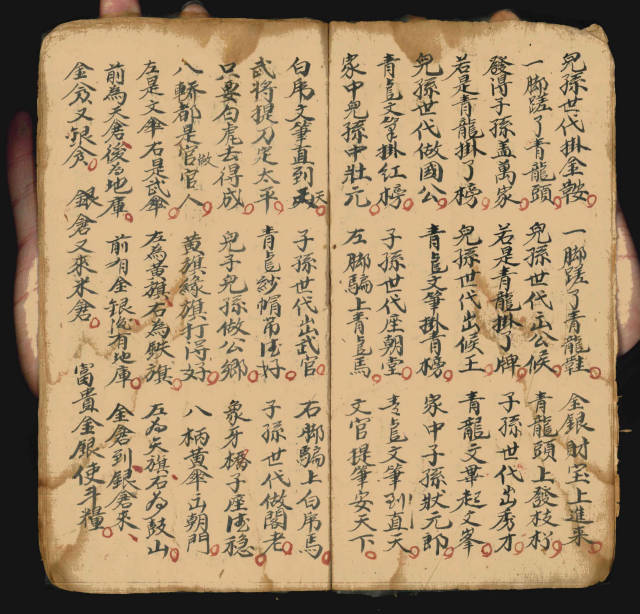 兒孫世代掛金鞍 一脚蹉了青龍鞋 金銀財宝上進来
一脚蹉了青龍頭 兒孫世代出公候 青龍頭上發枝杈
發得子孫盖萬家 若是青龍掛了牌 子孫世代出秀才
若是青龍掛了榜 兒孫世代出候王 青龍文筆起文峯
兒孫世代做國公 青龍文筆掛青榜 家中子孫狀元郎
青龍文筆掛紅榜 子孫世代座朝堂 青龍文筆到直天
家中兒孫中壯元 左脚騙上青龍馬 文官提筆安天下
白帋文筆直到天 子孫世代出武官 右脚騙上白帋馬
武将提刀定太平 青龍紗帽吊得好 子孫世代做閣老
只要白虎去得成 兒子兒孫做公鄉 象牙櫈子座得穏
八轎都是官做官人 黄旗緑旗打得好 八柄黄傘出朝門
左是文傘右是武傘 左為黄旗右為联旗 左为天旗右为鼓山
前為天倉後為地庫 前有金銀後有地庫 金倉到銀倉来
金倉又銀倉 銀倉又來米倉 富貴金銀使斗糧